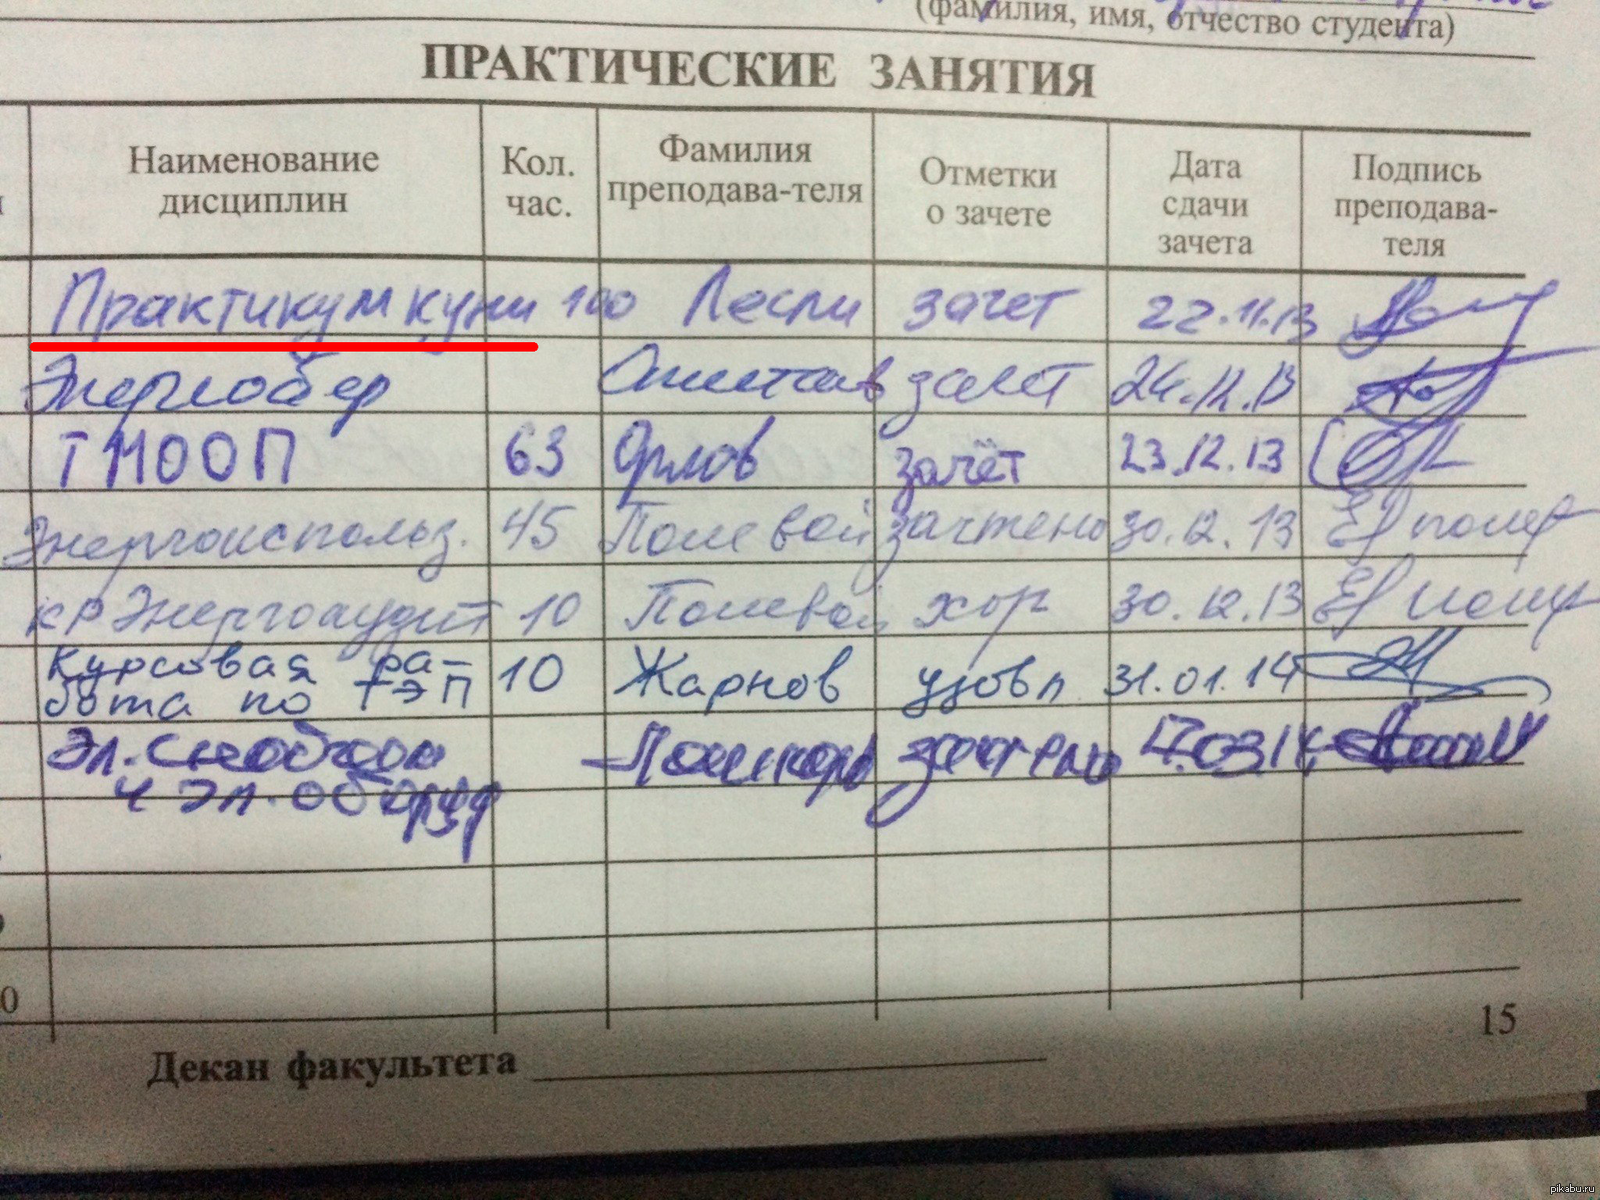 (фамилия, имя, отчество студента)
ПРАКТИЧЕСКИЕ ЗАНЯТИЯ
Наименование дисциплин Кол. час. Фамилия преподава-теля Отметки о зачете Дата сдачи зачета Подпись преподава-теля
Практикум куни 100 Лесли зачет 22.11.13
Энергосбер зачет 24.12.13
ТМООП 63 Орлов зачёт 23.12.13
Энергоиспольз. 45 Полевой зачтено 30.12.13
КР Энергоаудит 10 Полевой хор 30.12.13
Курсовая ра-
бота по ТЭП 10 Жарнов удовл 31.01.14
Эл. снабжен зачтено 17.03.14
и эл. оборуд
0
15
Декан факультета
pikabu.ru